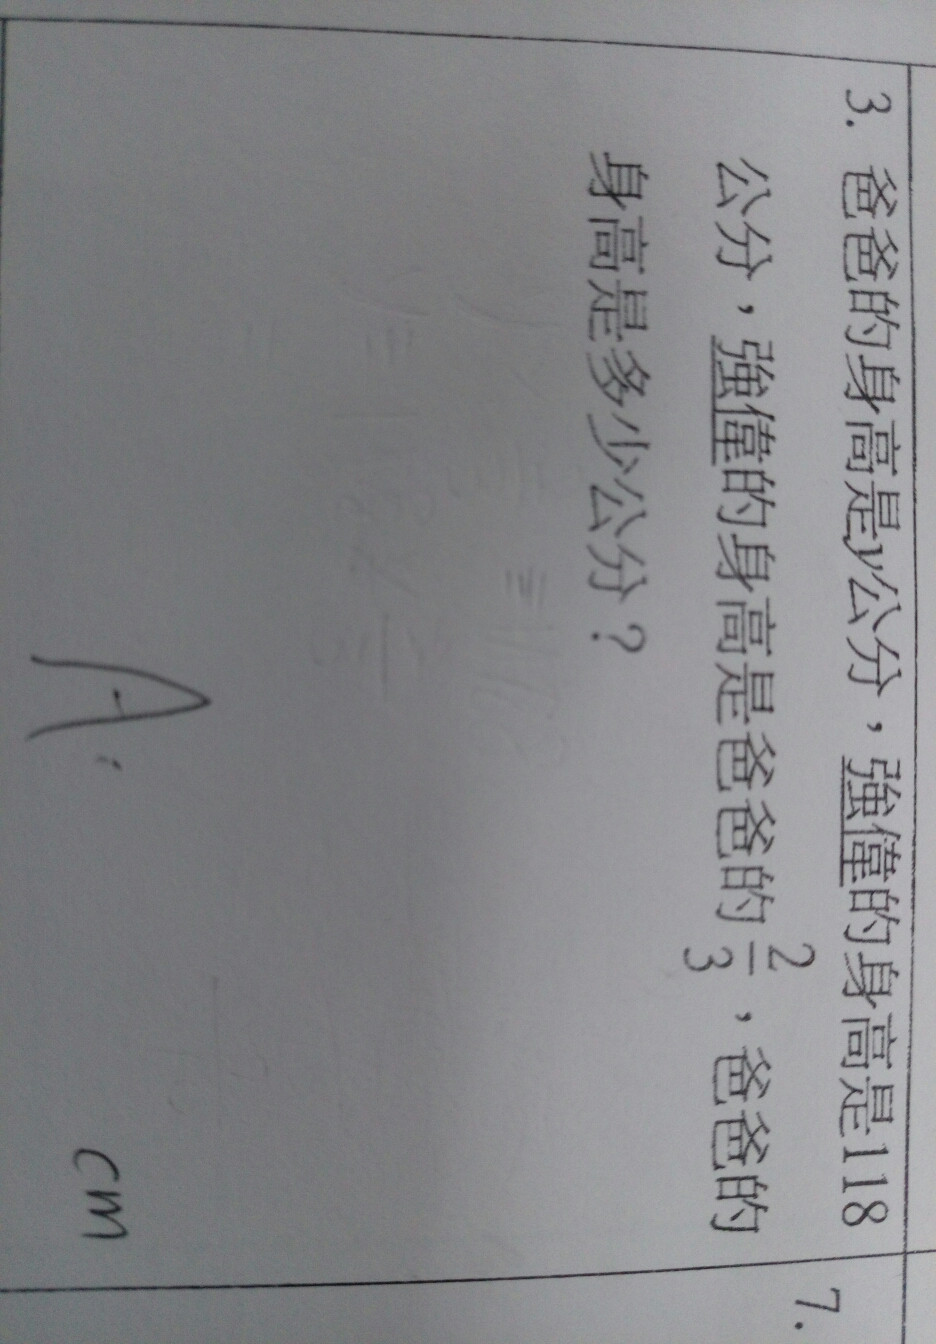 3. 爸爸的身高是y公分，強偉的身高是118
公分，強偉的身高是爸爸的2/3，爸爸的
身高是多少公分？
A: cm
7.